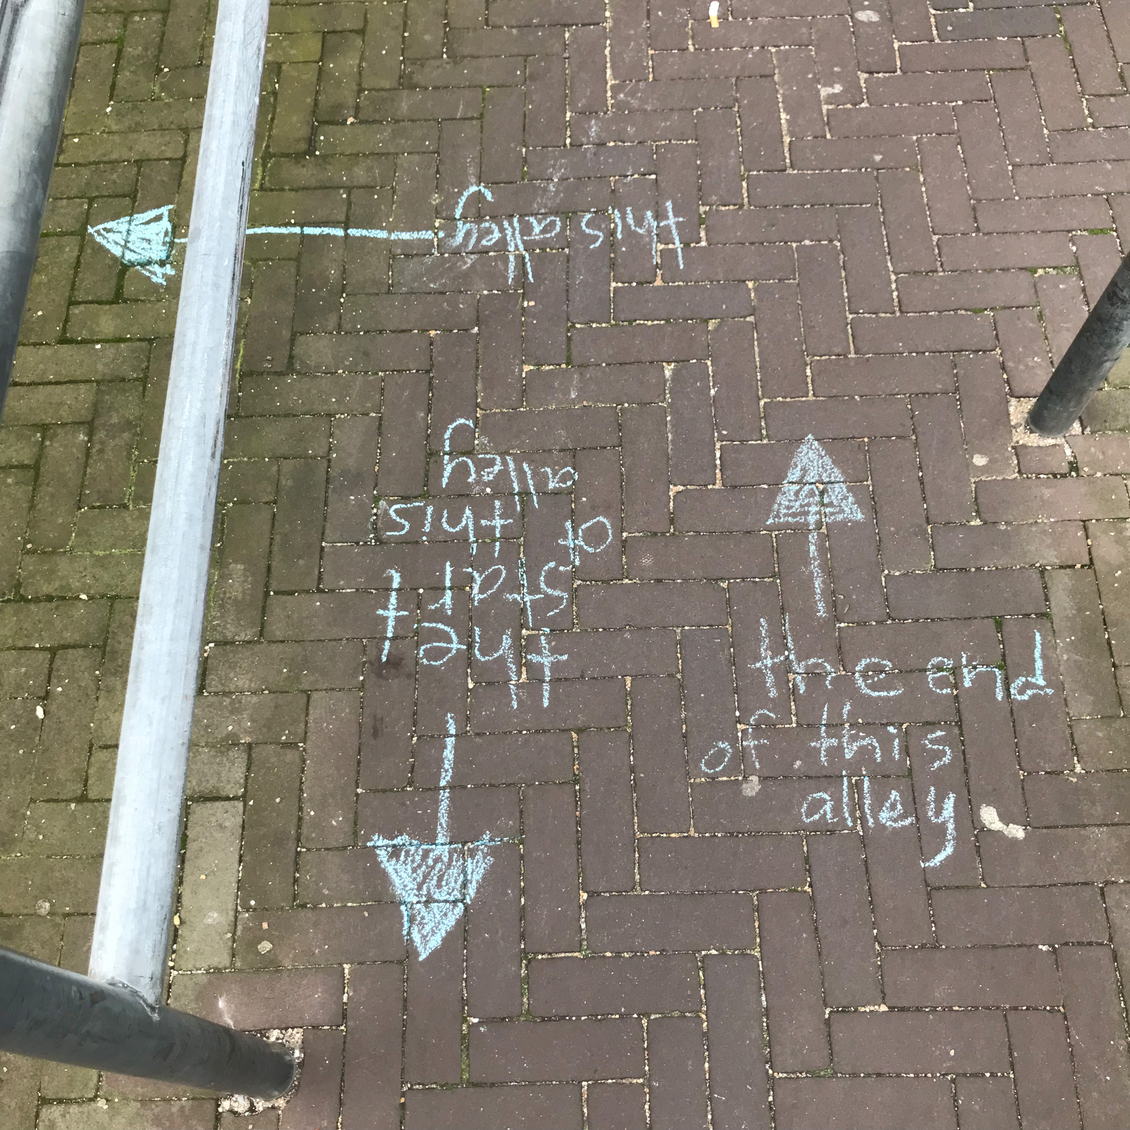 this alley
the end
of this
alley
the start
of this
alley